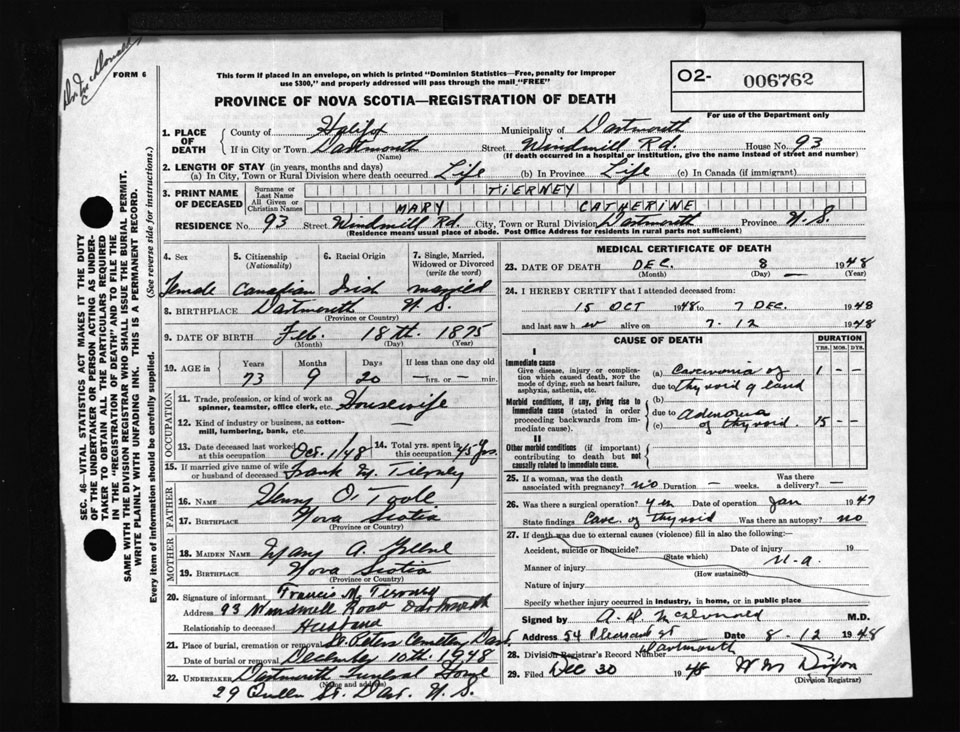 FORM 6
This form if placed in an envelope, on which is printed "Dominion Statistics—Free, penalty for improper
use $300," and properly addressed will pass through the mail "FREE"
O2- 006762
For use of the Department only
PROVINCE OF NOVA SCOTIA—REGISTRATION OF DEATH
SEC. 46—VITAL STATISTICS ACT MAKES IT THE DUTY
OF THE UNDERTAKER OR PERSON ACTING AS UNDER-
TAKER TO OBTAIN ALL THE PARTICULARS REQUIRED
IN THE "REGISTRATION OF DEATH" AND TO FILE THE
SAME WITH THE DIVISION REGISTRAR WHO SHALL ISSUE THE BURIAL PERMIT.
WRITE PLAINLY WITH UNFADING INK. THIS IS A PERMANENT RECORD.
Every item of information should be carefully supplied. (See reverse side for instructions.)
1. PLACE OF DEATH
County of Halifax Municipality of Dartmouth
If in City or Town Dartmouth Street Windmill Rd. House No. 93
(Name) (If death occurred in a hospital or institution, give the name instead of street and number)
2. LENGTH OF STAY (in years, months and days)
(a) In City, Town or Rural Division where death occurred Life (b) In Province Life (c) In Canada (if immigrant)
3. PRINT NAME OF DECEASED
Surname or Last Name TIERNEY
All Given or Christian Names MARY CATHERINE
RESIDENCE No. 93 Street Windmill Rd. City, Town or Rural Division Dartmouth Province N.S.
(Residence means usual place of abode. Post Office Address for residents in rural parts not sufficient)
4. Sex 5. Citizenship (Nationality) 6. Racial Origin 7. Single, Married, Widowed or Divorced (write the word)
Female Canadian Irish married
8. BIRTHPLACE Dartmouth N.S.
(Province or Country)
9. DATE OF BIRTH Feb. 18th. 1875
(Month) (Day) (Year)
19. AGE in Years Months Days If less than one day old
73 9 20 — hrs. or — min.
OCCUPATION
11. Trade, profession, or kind of work as
spinner, teamster, office clerk, etc. Housewife
12. Kind of industry or business, as cotton-
mill, lumbering, bank, etc. —
13. Date deceased last worked at this occupation Oct. 1/48 14. Total yrs. spent in this occupation 45 yrs.
15. If married give name of wife
or husband of deceased Frank M. Tierney
FATHER
16. NAME Henry O'Toole
17. BIRTHPLACE Nova Scotia
(Province or Country)
MOTHER
18. MAIDEN NAME Mary A. Greene
19. BIRTHPLACE Nova Scotia
(Province or Country)
20. Signature of informant Francis M. Tierney
Address 93 Windmill Road Dartmouth
Relationship to deceased Husband
21. Place of burial, cremation or removal St. Peters Cemetery Dart
Date of burial or removal December 10th 1948
22. UNDERTAKER Dartmouth Funeral Home
(Name and address)
29 Queen St. Dar. N.S.
MEDICAL CERTIFICATE OF DEATH
23. DATE OF DEATH DEC. 8 — 1948
(Month) (Day) (Year)
24. I HEREBY CERTIFY that I attended deceased from:
15 OCT 1948 to 7 DEC. 1948
and last saw her alive on 7.12 1948
CAUSE OF DEATH DURATION
YRS. MOS. DYS.
I
Immediate cause
Give disease, injury or complica-
tion which caused death, NOT the
mode of dying, such as heart failure,
asphyxia, asthenia, etc.
(a) Carcinoma of 1 — —
due to thyroid gland
Morbid conditions, if any, giving rise to
immediate cause (stated in order
proceeding backwards from im-
mediate cause).
(b)
due to Adenoma
(c) of thyroid. 15 — —
II
Other morbid conditions (if important)
contributing to death but not
causally related to immediate cause.
25. If a woman, was the death associated with pregnancy? no Duration — weeks. Was there a delivery? —
26. Was there a surgical operation? yes Date of operation Jan 1947
State findings Carc. of thyroid Was there an autopsy? no
27. If death was due to external causes (violence) fill in also the following:
Accident, suicide or homicide? Date of injury 19
(State which) n.a.
Manner of injury
(How sustained)
Nature of injury
Specify whether injury occurred in industry, in home, or in public place
Signed by A. D. McDonald M.D.
Address 54 Pleasant St Date 8-12 1948
Dartmouth
28. Division Registrar's Record Number
29. Filed Dec 30 1948 W M Dixon
(Division Registrar)